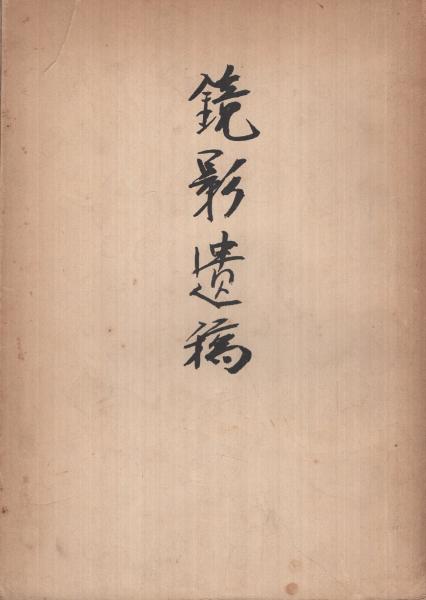 鏡影遺稿